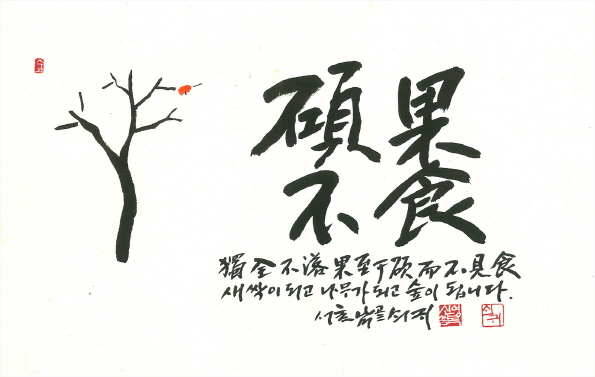 碩果
不食
獨全不落果至于碩而不見食
새싹이 되고 나무가 되고 숲이 됩니다.